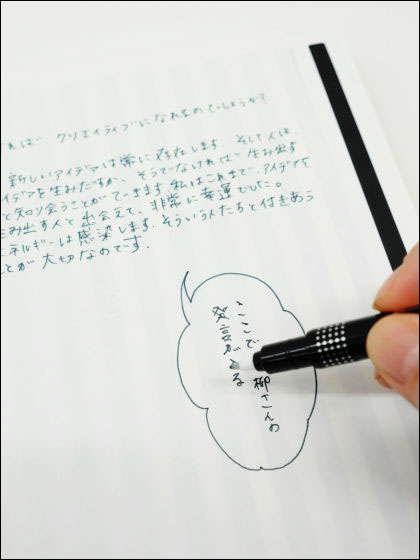 れば クリエイティブになれるのでしょうか?
新しいアイデアは常に存在します。そして人は、
イデアを生みだすか、そうでなければ生み出す
と知り合うことができます。私はこれまで、アイデアを
生み出す人と出会えて、非常に幸運でした。
エネルギーは感染します。そういう人たちと付きあう
ことが大切なのです。
ここで 柳さんの
発言が る